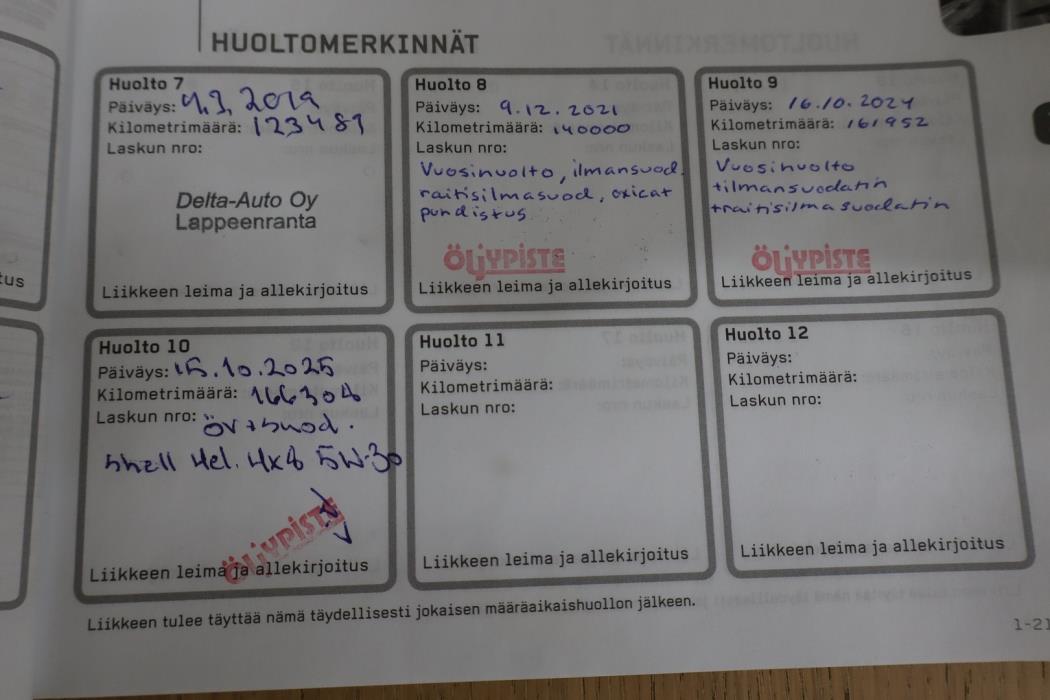 HUOLTOMERKINNÄT
Huolto 7
Päiväys: 4.3.2019
Kilometrimäärä: 123481
Laskun nro:
Delta-Auto Oy
Lappeenranta
Liikkeen leima ja allekirjoitus
Huolto 8
Päiväys: 9.12.2021
Kilometrimäärä: 140000
Laskun nro:
Vuosihuolto, ilmansuod.
raitisilmasuod, oxicat
puhdistus
ÖLJYPISTE
Liikkeen leima ja allekirjoitus
Huolto 9
Päiväys: 16.10.2024
Kilometrimäärä: 161952
Laskun nro:
Vuosihuolto
+ilmansuodatin
+raitisilmasuodatin
ÖLJYPISTE
Liikkeen leima ja allekirjoitus
Huolto 10
Päiväys: 15.10.2025
Kilometrimäärä: 166304
Laskun nro:
öv+suod.
Shell Hel. HX8 5W-30
ÖLJYPISTE
Liikkeen leima ja allekirjoitus
Huolto 11
Päiväys:
Kilometrimäärä:
Laskun nro:
Liikkeen leima ja allekirjoitus
Huolto 12
Päiväys:
Kilometrimäärä:
Laskun nro:
Liikkeen leima ja allekirjoitus
Liikkeen tulee täyttää nämä täydellisesti jokaisen määräaikaishuollon jälkeen.
1-21